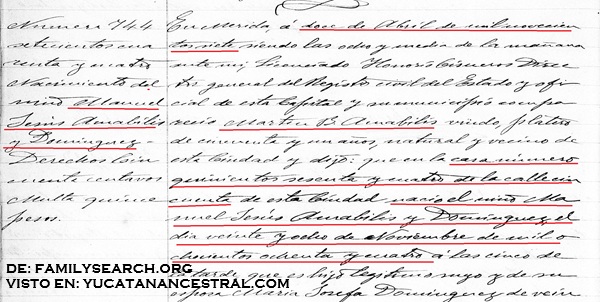 Número 744
setecientos cua
renta y cuatro
Nacimiento del
niño Manuel
Jesús Amabilis
y Dominguez
Derechos cin
cuenta centavos
Multa quince
pesos.
En Mérida, á doce de Abril de mil novecien
tos siete siendo las ocho y media de la mañana
ante mí, Licenciado Honorio Cisneros Direc
tor general del Registro civil del Estado y ofi
cial de esta Capital y su municipio compa
reció Martin B. Amabilis viudo, platero
de cuarenta y un años, natural y vecino de
esta Ciudad y dijo: que en la casa número
quinientos sesenta y cuatro de la calle cin
cuenta de esta Ciudad nació el niño Ma
nuel Jesús Amabilis y Dominguez, el
día veinte y ocho de Noviembre de mil o
chocientos ochenta y cuatro á las cinco de
la tarde, que es hijo legítimo suyo y de su
esposa Maria Josefa Dominguez de vein
DE: FAMILYSEARCH.ORG
VISTO EN: YUCATANANCESTRAL.COM